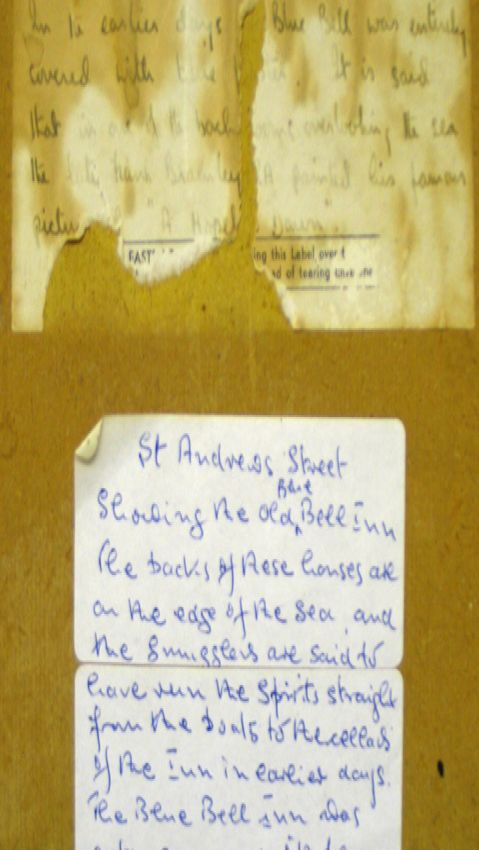 In ye earlier days Blue Bell was entirely
covered with It is said
that in one of the back rooms overlooking the sea
the late Frank Bramley RA painted his famous
picture "A Hopeless Dawn".
EAST
ing this Label over t
ad of tearing
St Andrews Street
Showing the old Blue Bell Inn
The backs of these houses are
on the edge of the Sea, and
the Smugglers are said to
have run the Spirits straight
from the boats to the cellars
of the Inn in earlier days.
The Blue Bell Inn was